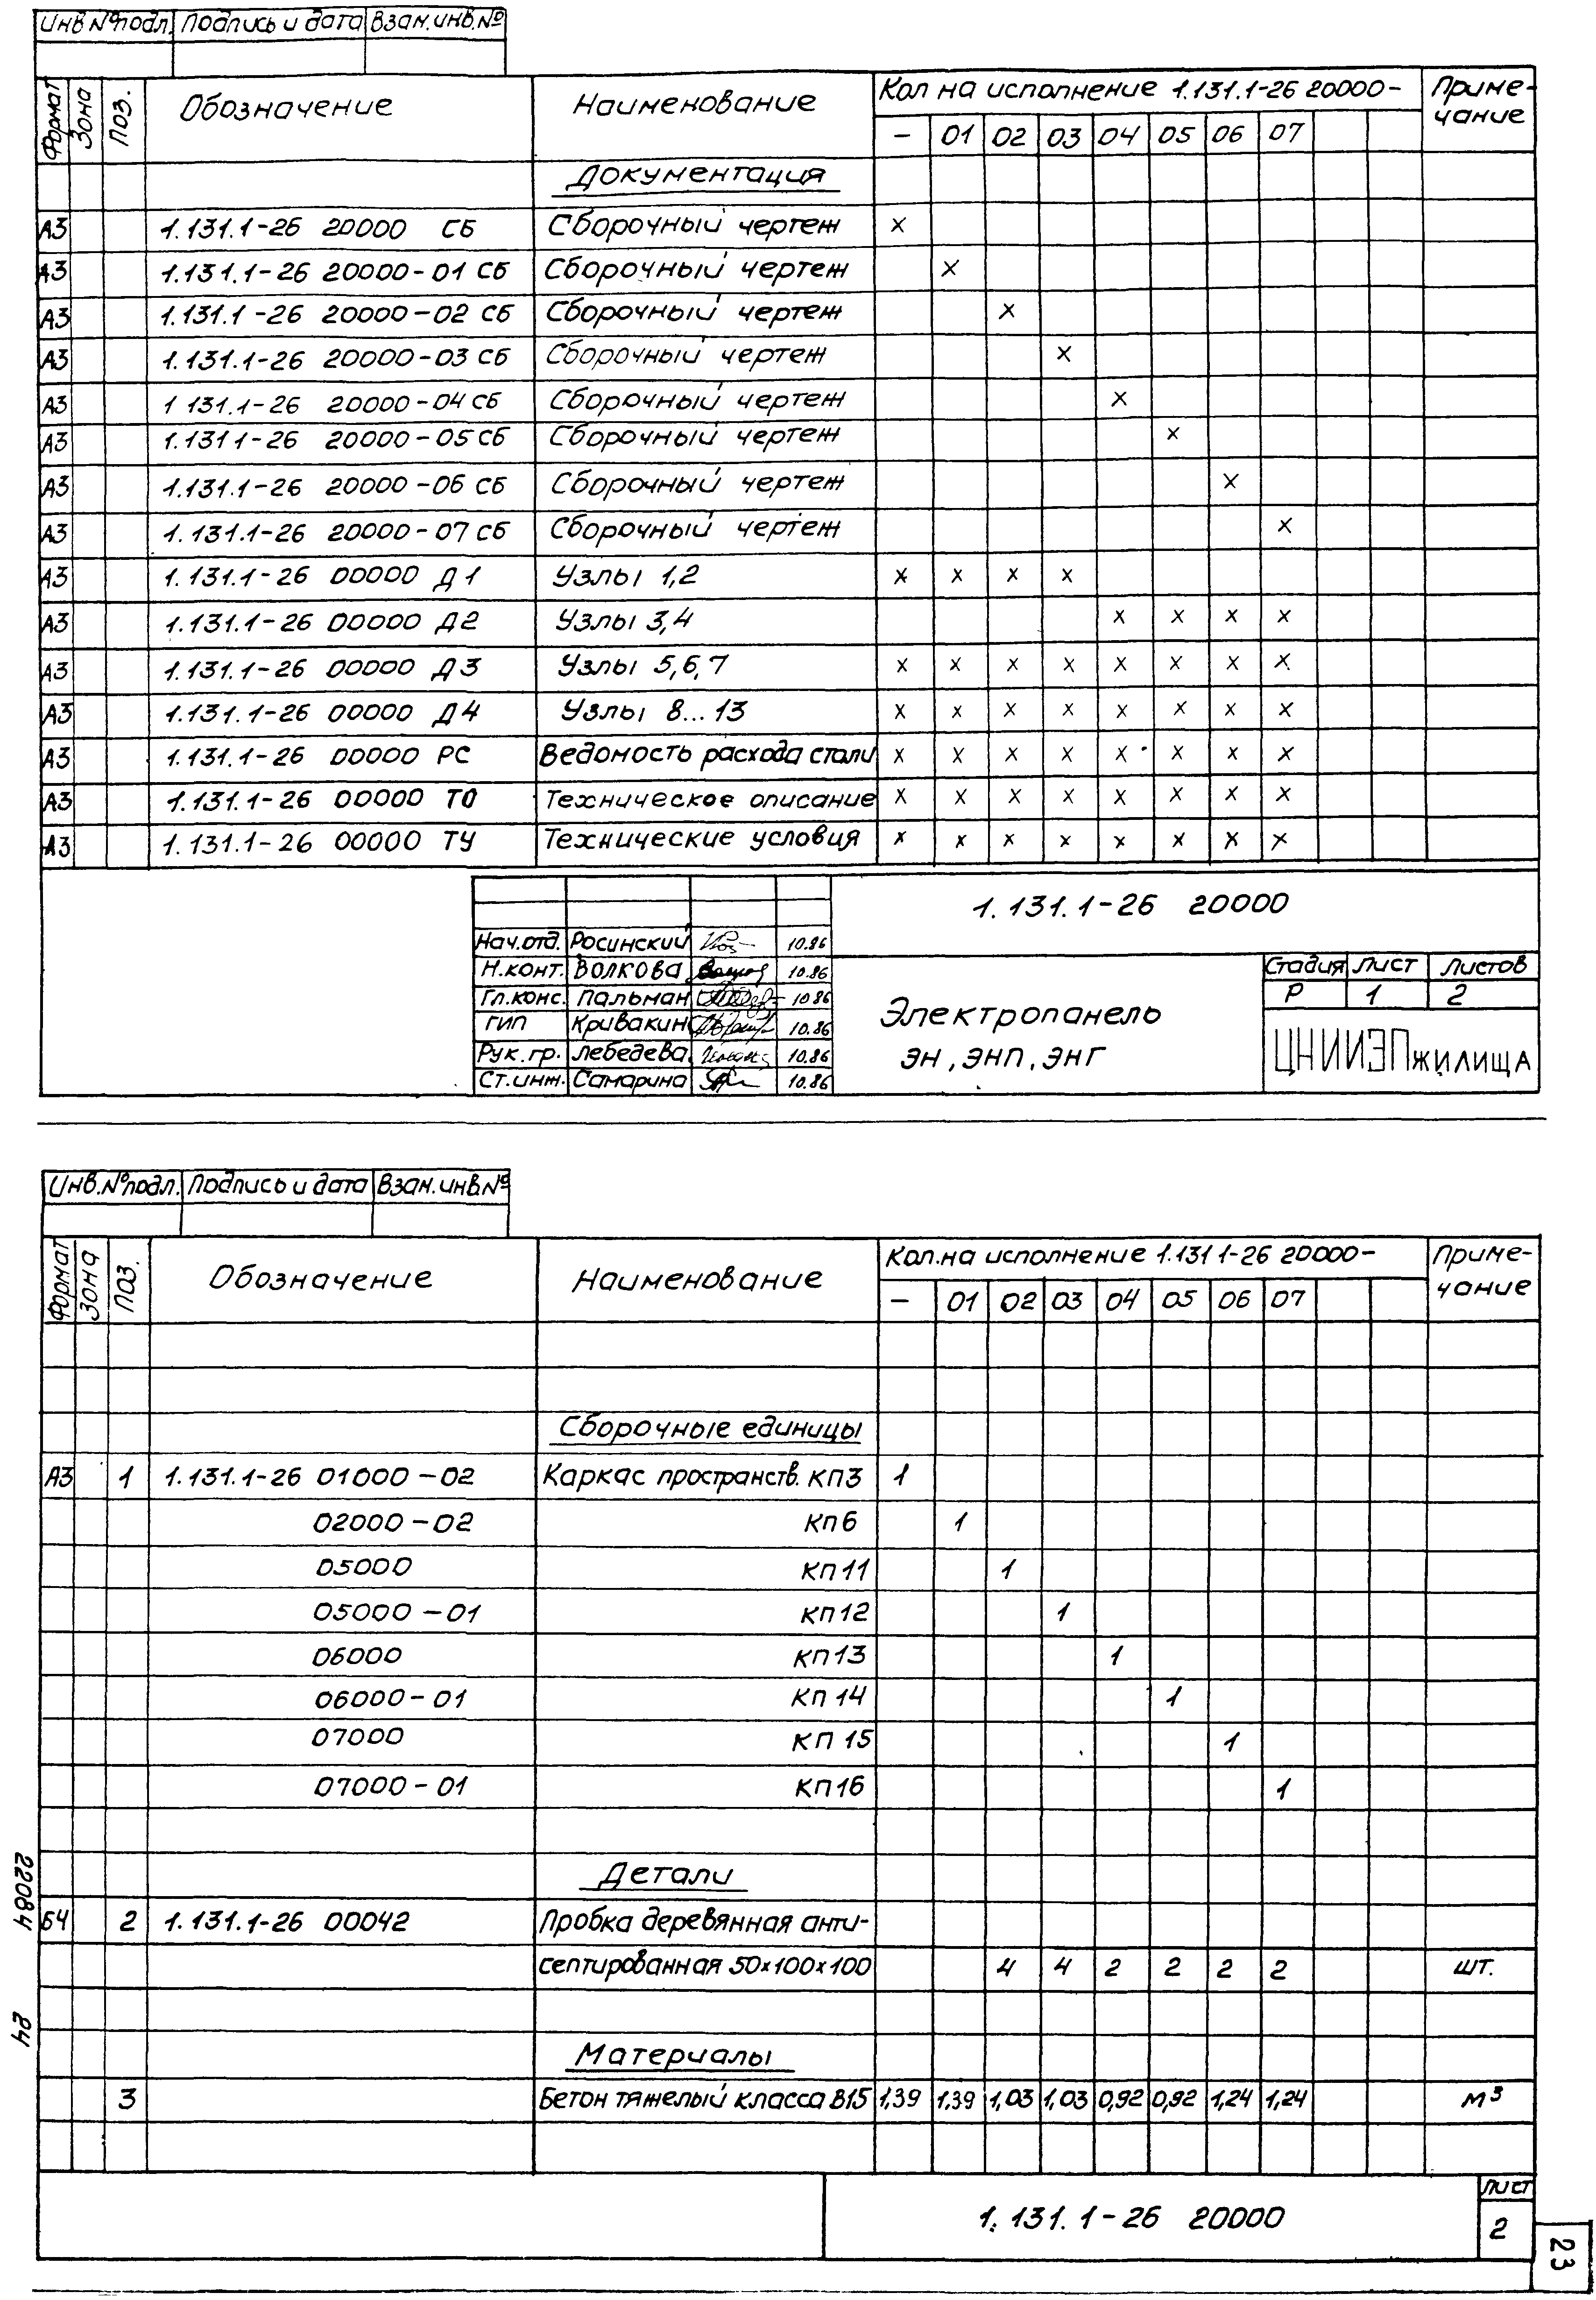 Инв №подл. Подпись и дата Взам.инв.№
Формат Зона Поз. Обозначение Наименование Кол на исполнение 1.131.1-26 20000- Приме-
чание
— 01 02 03 04 05 06 07
Документация
А3 1.131.1-26 20000 СБ Сборочный чертеж х
А3 1.131.1-26 20000-01 СБ Сборочный чертеж х
А3 1.131.1-26 20000-02 СБ Сборочный чертеж х
А3 1.131.1-26 20000-03 СБ Сборочный чертеж х
А3 1 131.1-26 20000-04 СБ Сборочный чертеж х
А3 1.131 1-26 20000-05 СБ Сборочный чертеж х
А3 1.131.1-26 20000-06 СБ Сборочный чертеж х
А3 1.131.1-26 20000-07 СБ Сборочный чертеж х
А3 1.131.1-26 00000 Д1 Узлы 1,2 х х х х
А3 1.131.1-26 00000 Д2 Узлы 3,4 х х х х
А3 1.131.1-26 00000 Д3 Узлы 5,6,7 х х х х х х х х
А3 1.131.1-26 00000 Д4 Узлы 8...13 х х х х х х х х
А3 1.131.1-26 00000 РС Ведомость расхода стали х х х х х х х х
А3 1.131.1-26 00000 ТО Техническое описание х х х х х х х х
А3 1.131.1-26 00000 ТУ Технические условия х х х х х х х х
1.131.1-26 20000
Нач.отд. Росинский 10.86
Н.конт. Волкова 10.86
Гл.конс. Пальман 10.86
ГИП Кривакин 10.86
Рук.гр. Лебедева 10.86
Ст.инж. Самарина 10.86
Электропанель
ЭН, ЭНП, ЭНГ
Стадия Лист Листов
Р 1 2
ЦНИИЭПжилища
Инв.№подл. Подпись и дата Взам.инв.№
Формат Зона Поз. Обозначение Наименование Кол.на исполнение 1.131 1-26 20000- Приме-
чание
— 01 02 03 04 05 06 07
Сборочные единицы
А3 1 1.131.1-26 01000-02 Каркас пространств. КП3 1
02000-02 КП6 1
05000 КП11 1
05000-01 КП12 1
06000 КП13 1
06000-01 КП14 1
07000 КП15 1
07000-01 КП16 1
Детали
Б4 2 1.131.1-26 00042 Пробка деревянная анти-
септированная 50х100х100 4 4 2 2 2 2 шт.
Материалы
3 Бетон тяжелый класса В15 1,39 1,39 1,03 1,03 0,92 0,92 1,24 1,24 м³
1.131.1-26 20000
Лист
2
22084 24
23